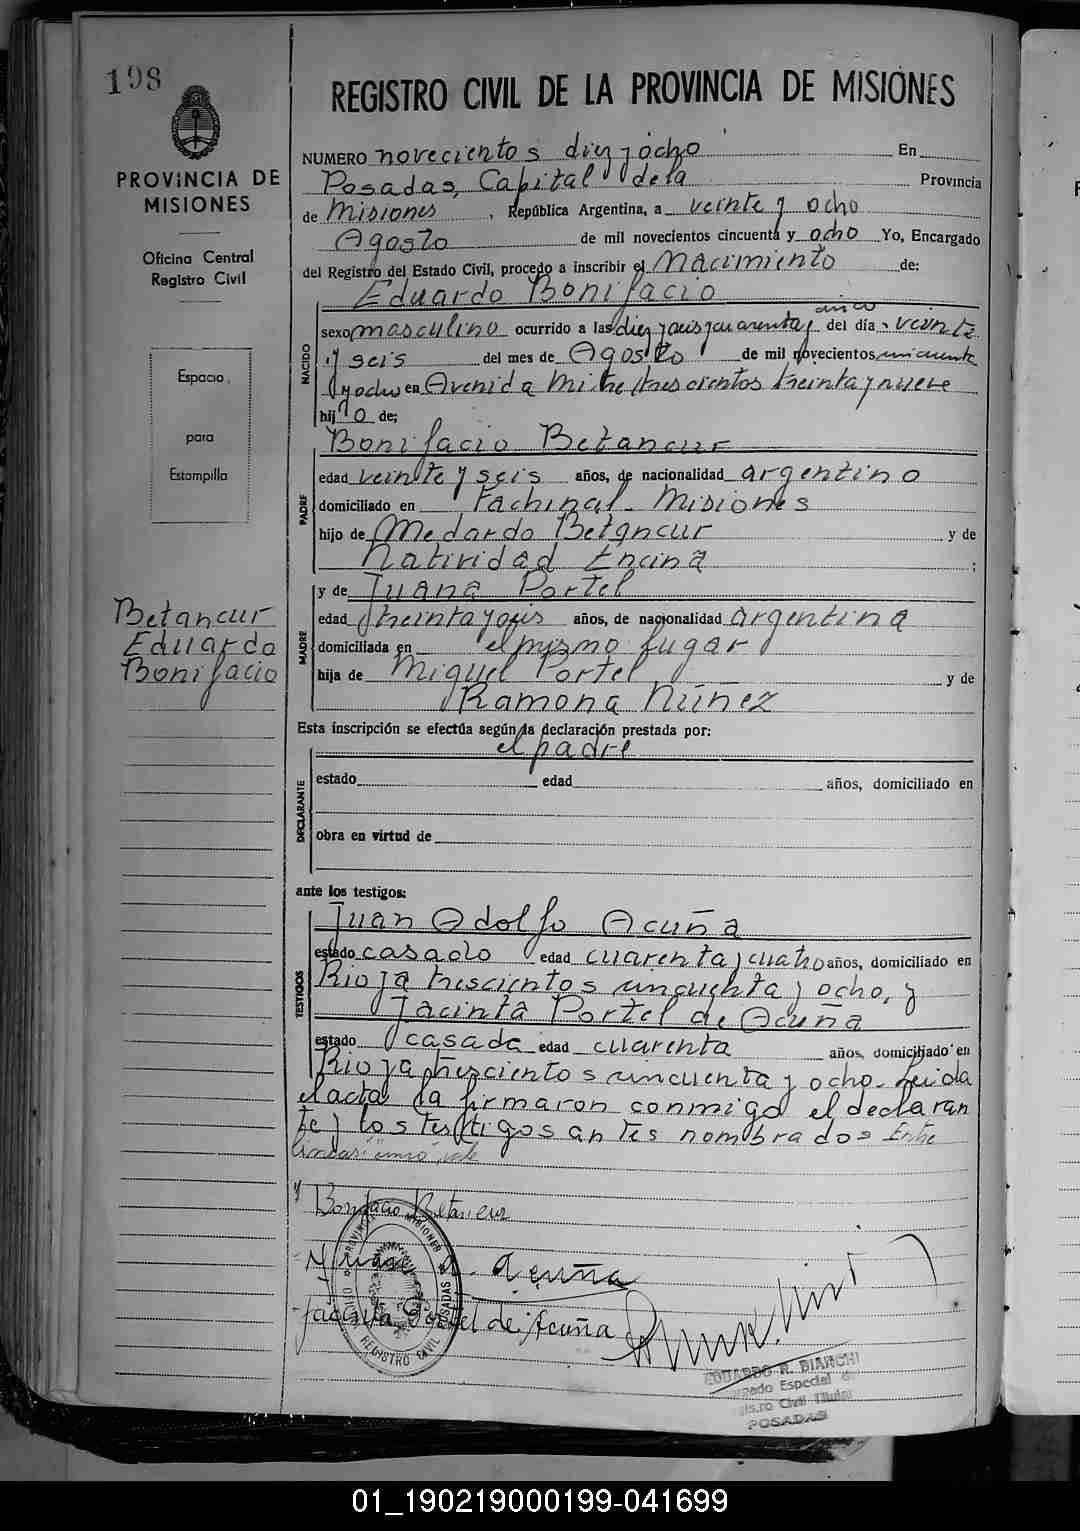 198
PROVINCIA DE
MISIONES
Oficina Central
Registro Civil
Espacio
para
Estampilla
Betancur
Eduardo
Bonifacio
REGISTRO CIVIL DE LA PROVINCIA DE MISIONES
NUMERO novecientos diez y ocho En
Posadas, Capital de la Provincia
de Misiones, República Argentina, a veinte y ocho
Agosto de mil novecientos cincuenta y ocho Yo, Encargado
del Registro del Estado Civil, procedo a inscribir el Nacimiento de:
Eduardo Bonifacio
NACIDO
cinco
sexo masculino ocurrido a las diez y seis y cuarenta y del día veinte
y seis del mes de Agosto de mil novecientos cincuenta
y ocho en Avenida Mitre trescientos treinta y nueve
hijo de;
Bonifacio Betancur
PADRE
edad veinte y seis años, de nacionalidad argentino
domiciliado en Pachinal - Misiones
hijo de Medardo Betancur y de
Natividad Encina ;
y de Juana Portel
MADRE
edad treinta y seis años, de nacionalidad argentina
domiciliada en el mismo lugar
hija de Miguel Portel y de
Ramona Núñez
Esta inscripción se efectúa según la declaración prestada por:
el padre
DECLARANTE
estado edad años, domiciliado en
obra en virtud de
ante los testigos:
Juan Adolfo Acuña
TESTIGOS
estado casado edad cuarenta y cuatro años, domiciliado en
Rioja trescientos cincuenta y ocho, y
Jacinta Portel de Acuña
estado casada edad cuarenta años, domiciliado en
Rioja trescientos cincuenta y ocho. Leida
el acta la firmaron conmigo el declaran
te y los testigos antes nombrados Entre
lineas: "cinco" vale
Bonifacio Betancur
Juan A. Acuña
Jacinta Portel de Acuña
PROVINCIA MISIONES POSADAS
REGISTRO CIVIL
EDUARDO R. BIANCHI
Especial
Civil Titular
POSADAS
01_190219000199-041699